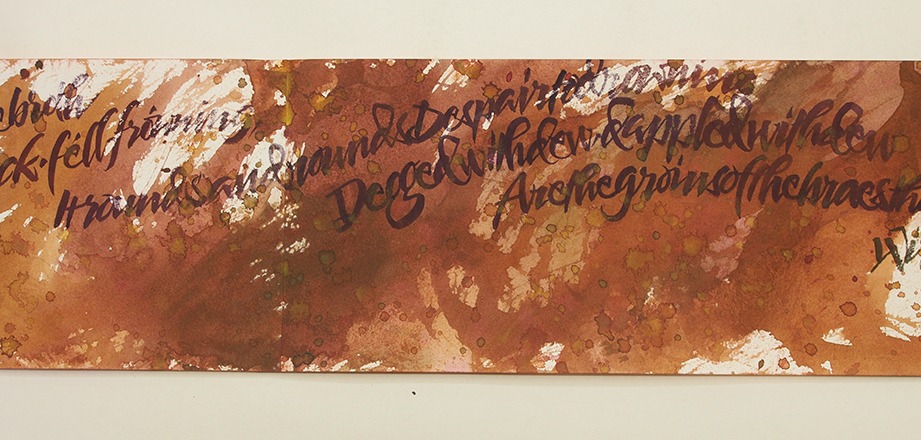 e broth
ck·féll frówning
It rounds and rounds Despair to drowning
Degged with dew, dappled with dew
Are the groins of the braes th
Wi